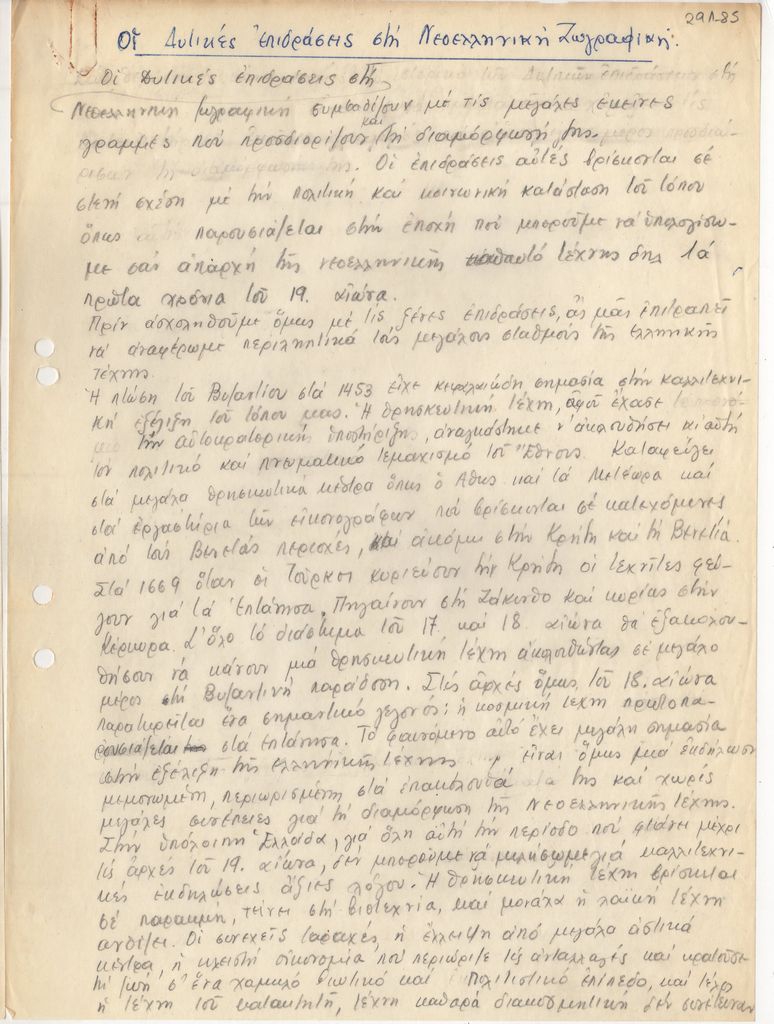 29Λ-85
Οἱ Δυτικές ἐπιδράσεις στή Νεοελληνική Ζωγραφική.
Οἱ Δυτικές ἐπιδράσεις στή
Νεοελληνική ζωγραφική συμβαδίζουν μέ τίς μεγάλες ἐκεῖνες
γραμμές πού προσδιορίζουν καί τή διαμόρφωσή της.
Οἱ ἐπιδράσεις αὐτές βρίσκονται σέ
στενή σχέση μέ τήν πολιτική καί κοινωνική κατάσταση τοῦ τόπου
ὅπως παρουσιάζεται στήν ἐποχή πού μποροῦμε νά ὑπολογίσου-
με σάν ἀπαρχή τῆς νεοελληνικῆς τέχνης δηλ. τά
πρῶτα χρόνια τοῦ 19. αἰώνα.
Πρίν ἀσχοληθοῦμε ὅμως μέ τίς ξένες ἐπιδράσεις, ἄς μᾶς ἐπιτραπεῖ
νά ἀναφέρωμε περιληπτικά τούς μεγάλους σταθμούς τῆς ἑλληνικῆς
τέχνης.
Ἡ πτώση τοῦ Βυζαντίου στά 1453 εἶχε κεφαλαιώδη σημασία στήν καλλιτεχνι-
κή ἐξέλιξη τοῦ τόπου μας. Ἡ θρησκευτική τέχνη, ἀφοῦ ἔχασε
τήν αὐτοκρατορική ὑποστήριξη, ἀναγκάστηκε ν' ἀκολουθήσει κι αὐτή
τόν πολιτικό καί πνευματικό τεμαχισμό τοῦ Ἔθνους. Καταφεύγει
στά μεγάλα θρησκευτικά κέντρα ὅπως ὁ Ἄθως καί τά Μετέωρα καί
στά ἐργαστήρια τῶν εἰκονογράφων πού βρίσκονται σέ κατεχόμενες
ἀπό τούς Βενετούς περιοχές, καί ἀκόμη στήν Κρήτη καί τή Βενετία.
Στά 1669 ὅταν οἱ Τοῦρκοι κυριεύουν τήν Κρήτη οἱ τεχνίτες φεύ-
γουν γιά τά Ἑπτάνησα. Πηγαίνουν στή Ζάκυνθο καί κυρίως στήν
Κέρκυρα. Σ' ὅλο τό διάστημα τοῦ 17. καί 18. αἰώνα θά ἐξακολου-
θήσουν νά κάνουν μιά θρησκευτική τέχνη ἀκολουθώντας σέ μεγάλο
μέρος τή Βυζαντινή παράδοση. Στίς ἀρχές ὅμως τοῦ 18. αἰώνα
παρατηρεῖται ἕνα σημαντικό γεγονός: ἡ κοσμική τέχνη πρωτοπα-
ρουσιάζεται στά Ἑπτάνησα. Τό φαινόμενο αὐτό ἔχει μεγάλη σημασία
στήν ἐξέλιξη τῆς ἑλληνικῆς τέχνης, εἶναι ὅμως μιά ἐκδήλωση
μεμονωμένη, περιωρισμένη στά ἐπακόλουθά της καί χωρίς
μεγάλες συνέπειες γιά τή διαμόρφωση τῆς Νεοελληνικῆς τέχνης.
Στήν ὑπόλοιπη Ἑλλάδα, γιά ὅλη αὐτή τήν περίοδο πού φτάνει μέχρι
τίς ἀρχές τοῦ 19. αἰώνα, δέν μποροῦμε νά μιλήσωμε γιά καλλιτεχνι-
κές ἐκδηλώσεις ἄξιες λόγου. Ἡ θρησκευτική τέχνη βρίσκεται
σέ παρακμή, τείνει στή βιοτεχνία, καί μονάχα ἡ λαϊκή τέχνη
ἀνθίζει. Οἱ συνεχεῖς ταραχές, ἡ ἔλλειψη ἀπό μεγάλα ἀστικά
κέντρα, ἡ κλειστή οἰκονομία πού περιώριζε τίς ἀνταλλαγές καί κρατοῦσε
τή ζωή σ' ἕνα χαμηλό βιωτικό καί πολιτιστικό ἐπίπεδο, καί τέλος
ἡ τέχνη τοῦ κατακτητῆ, τέχνη καθαρά διακοσμητική δέν συνέτειναν